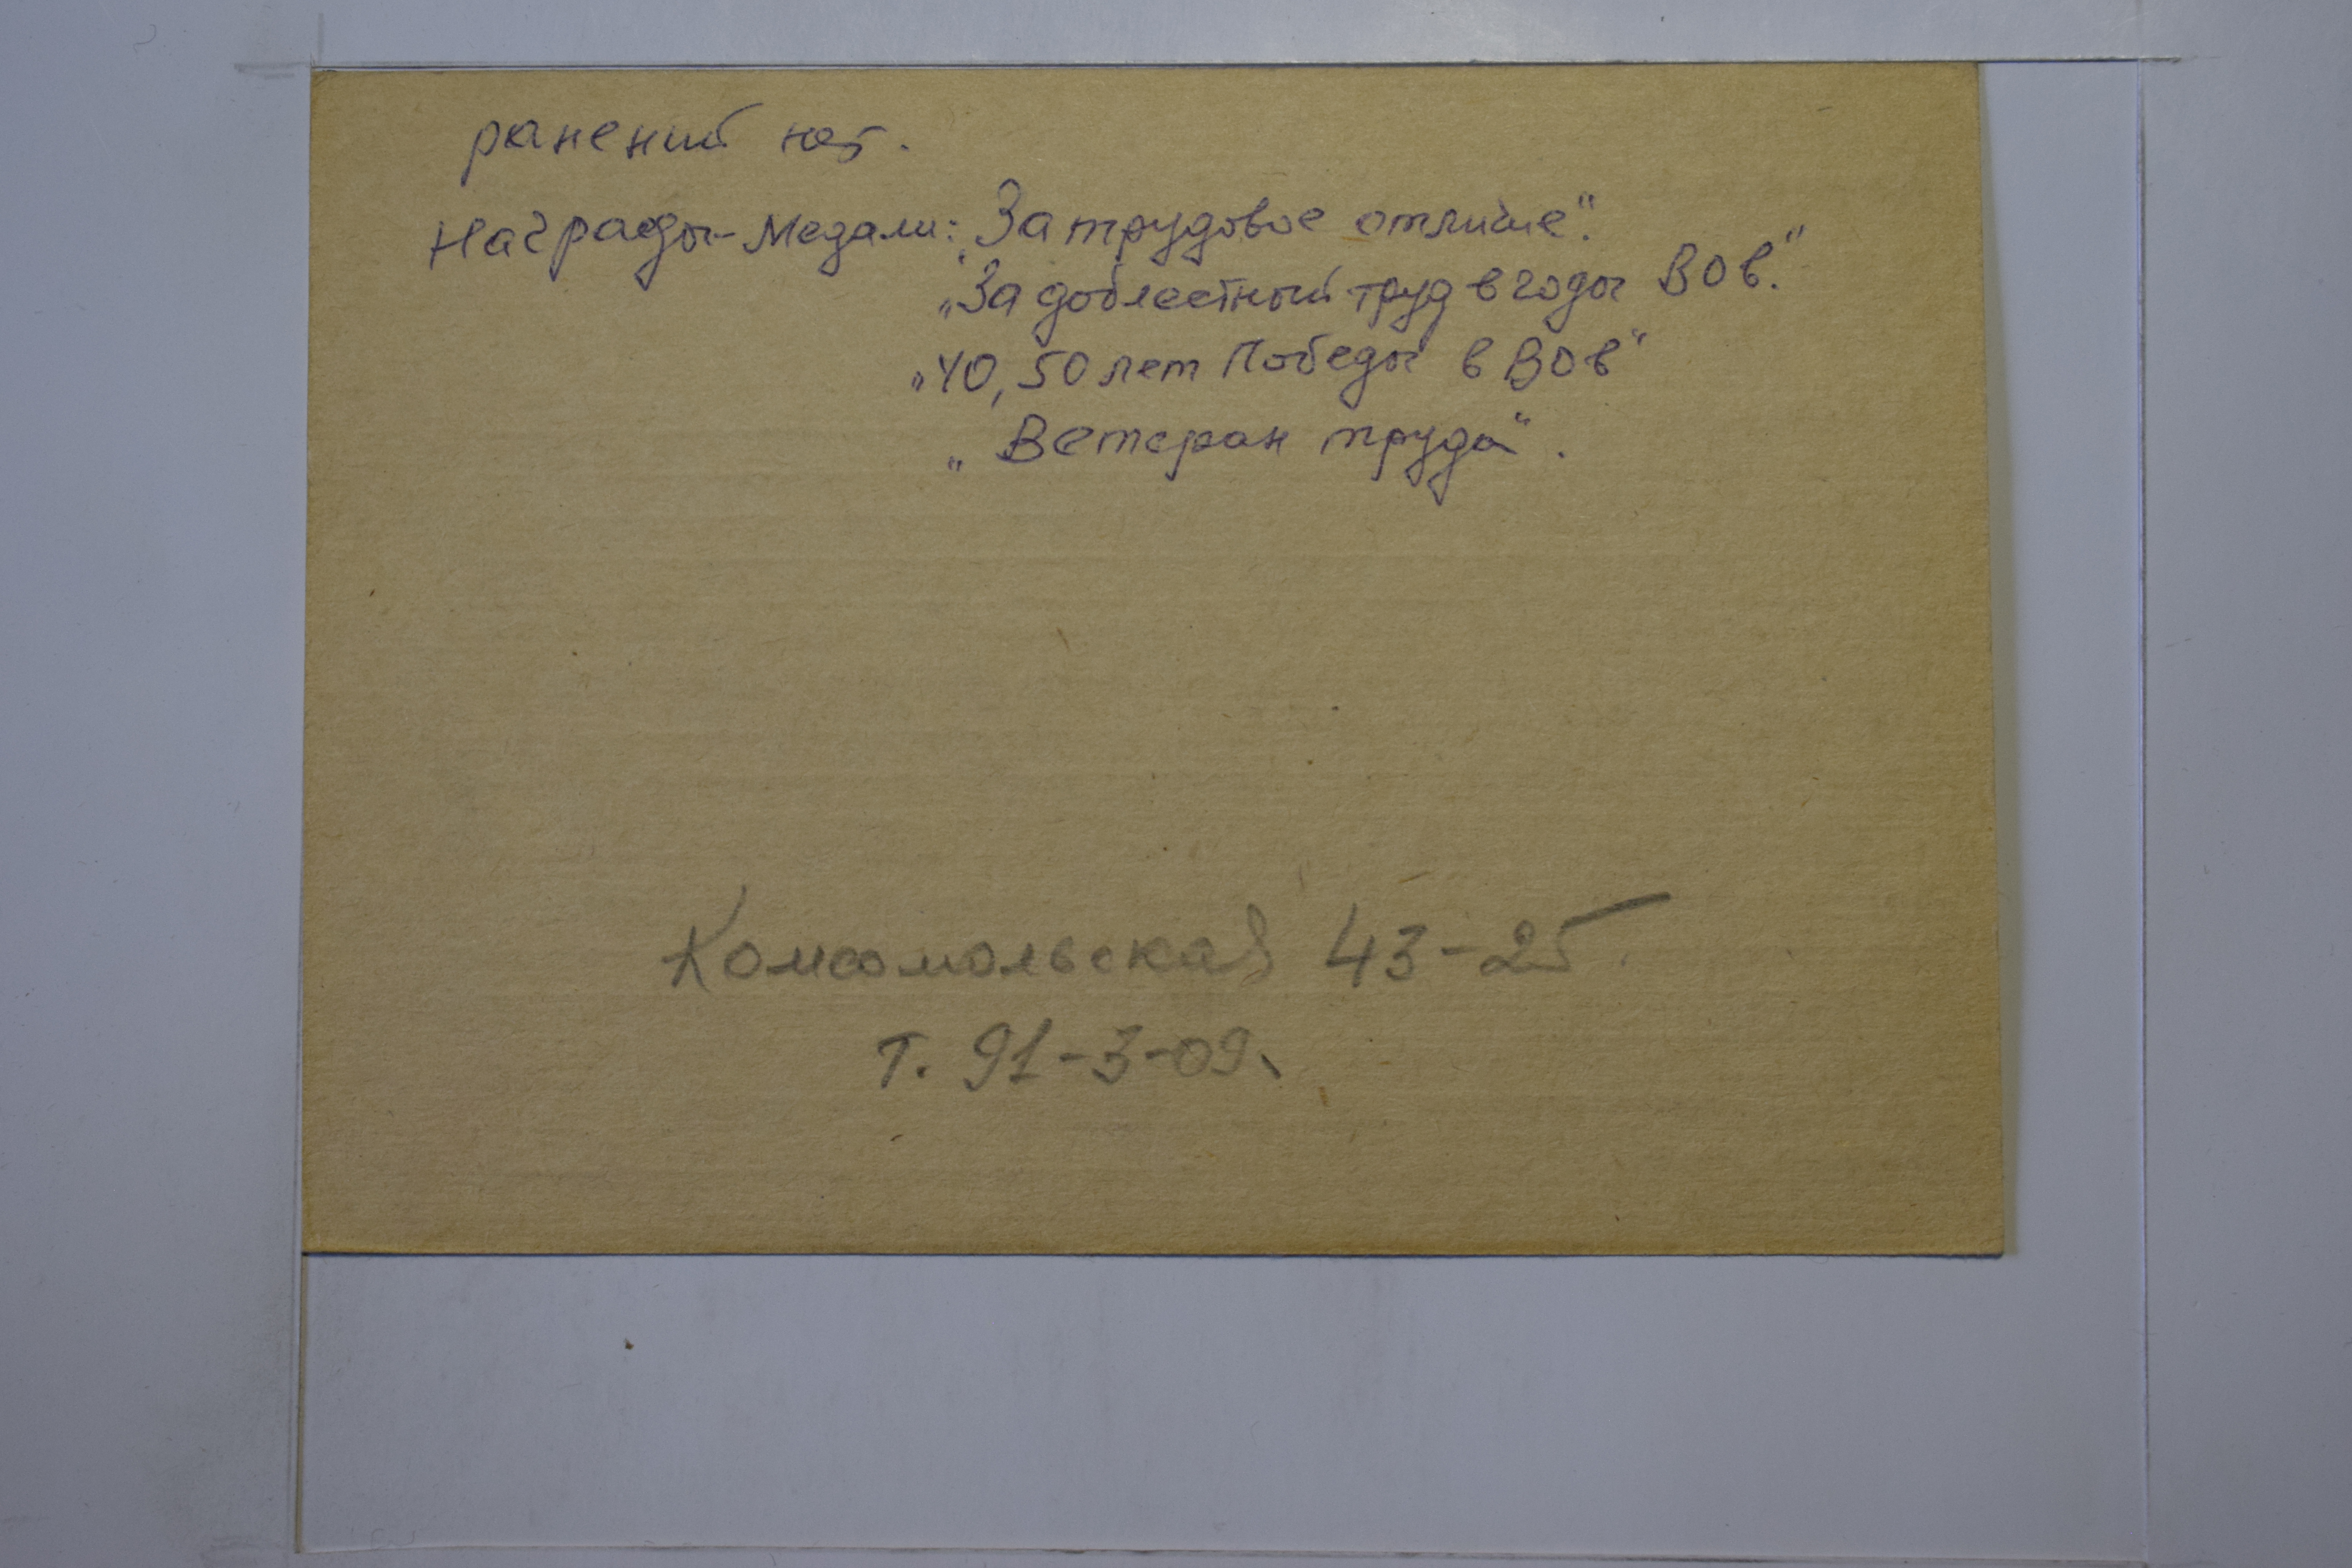 ранений нет.
Награды-Медали: „За трудовое отличие".
„За доблестный труд в годы ВОв."
„40, 50 лет Победы в ВОв"
„Ветеран труда".
Комсомольская 43-25.
т. 91-3-09.